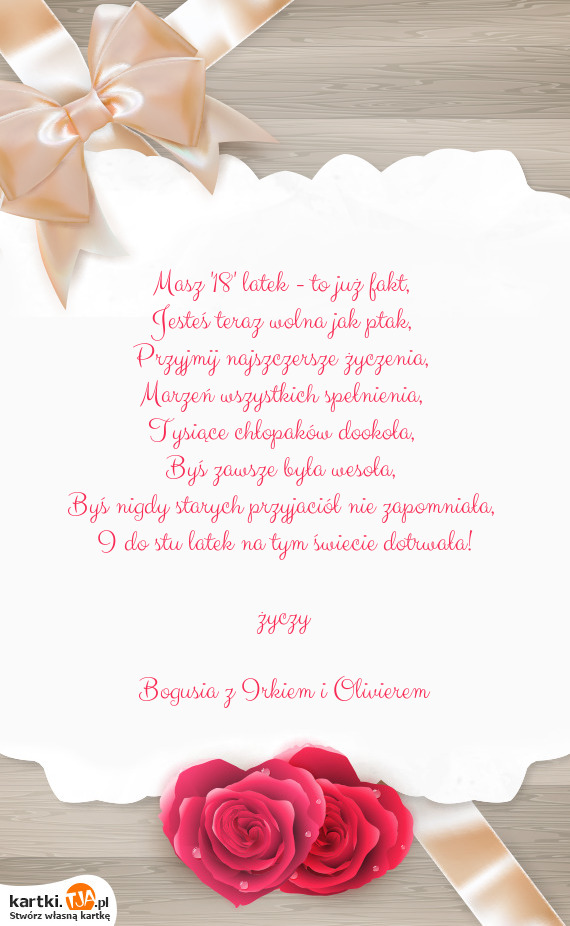 Masz '18' latek - to już fakt,
Jesteś teraz wolna jak ptak,
Przyjmij najszczersze życzenia,
Marzeń wszystkich spełnienia,
Tysiące chłopaków dookoła,
Byś zawsze była wesoła,
Byś nigdy starych przyjaciół nie zapomniała,
I do stu latek na tym świecie dotrwała!
życzy
Bogusia z Irkiem i Olivierem
kartki.TJA.pl
Stwórz własną kartkę